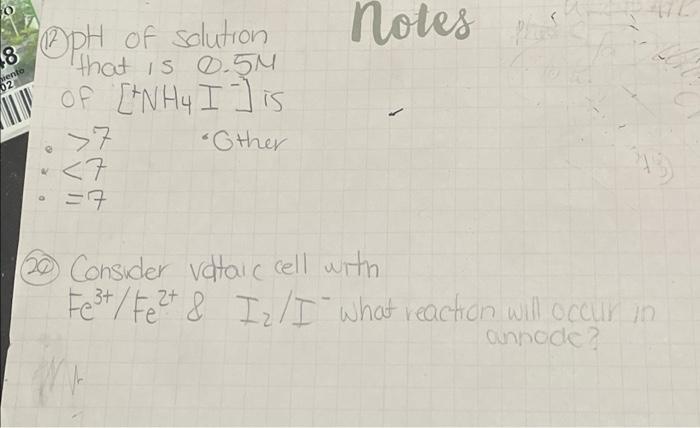 Notes
⑫ pH of solution
that is 0.5M
of [⁺NH4 I⁻] is
• >7 • Other
• <7
• =7
⑳ Consider voltaic cell with
Fe³⁺/Fe²⁺ & I₂/I⁻ what reaction will occur in
annode?